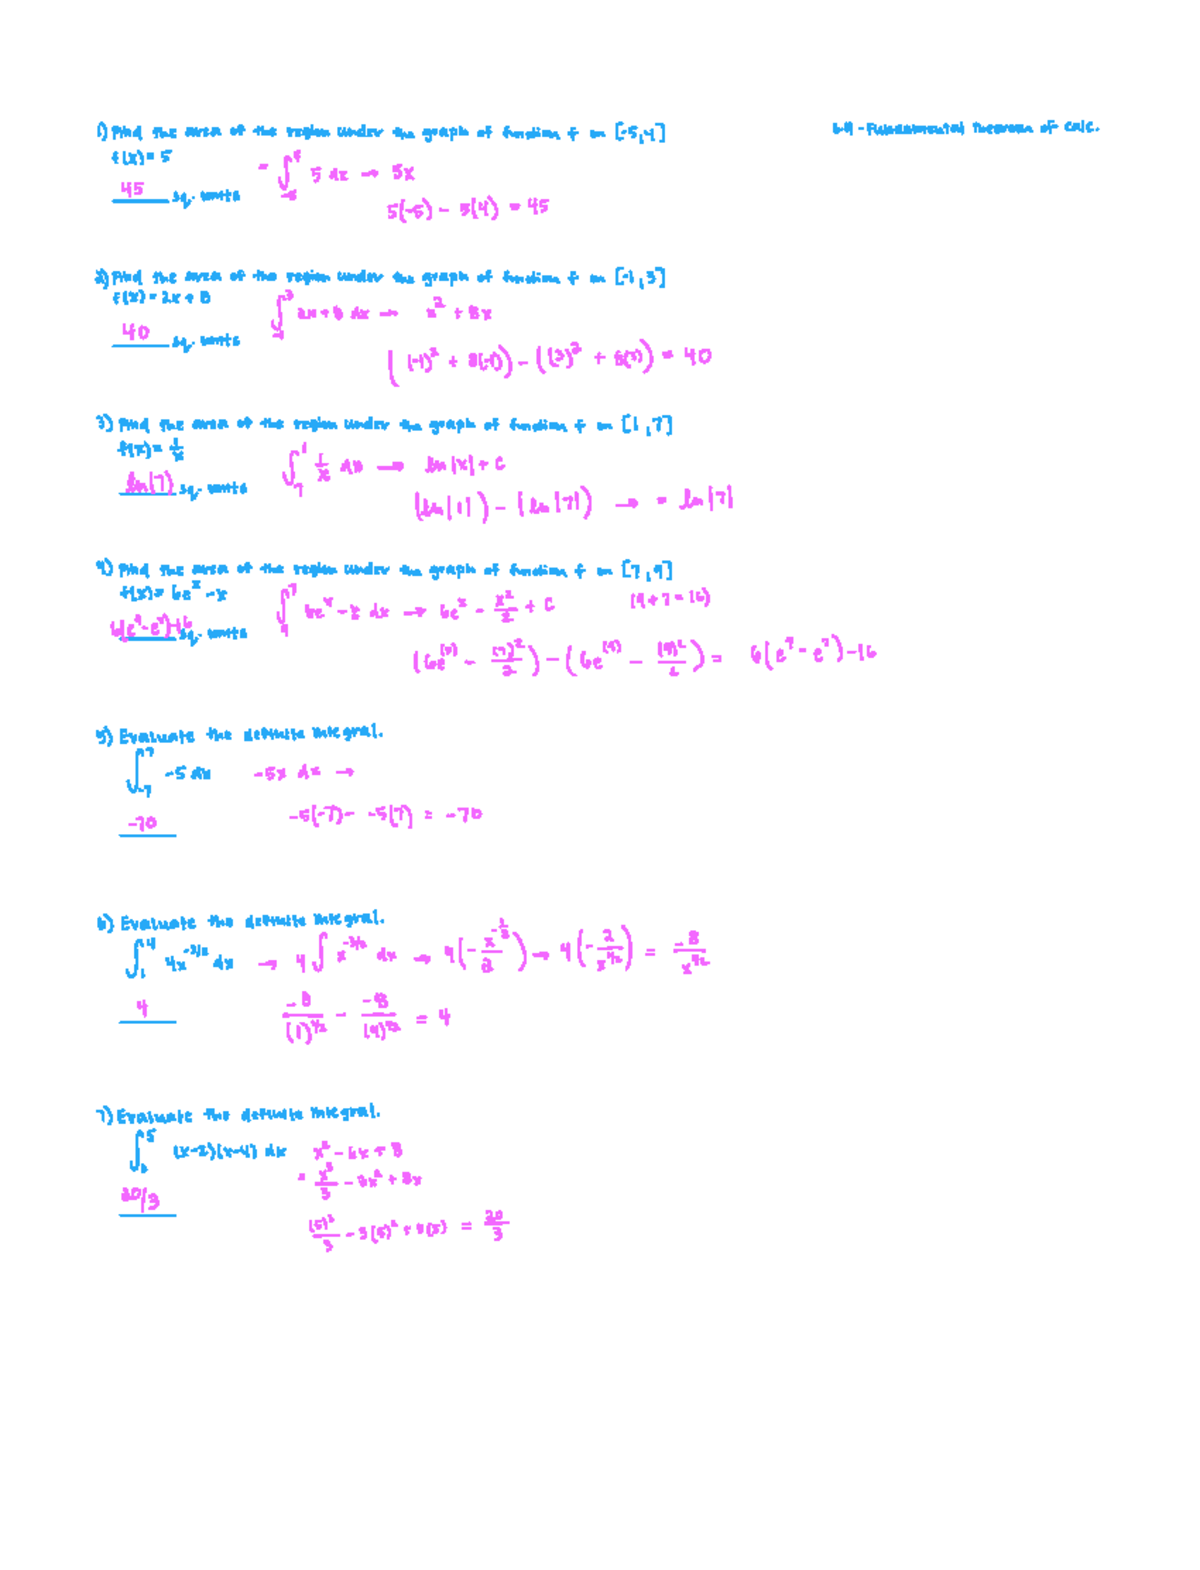 1) Find the area of the region under the graph of function f on [-5,4]
6.4 - Fundamental Theorem of Calc.
f(x) = 5
= ∫_{-5}^{4} 5 dx → 5x
45 sq. units
5(-5) - 5(4) = 45
2) Find the area of the region under the graph of function f on [-1,3]
f(x) = 2x + 8
∫_{-1}^{3} 2x + 8 dx → x² + 8x
40 sq. units
((-1)² + 8(-1)) - ((3)² + 8(3)) = 40
3) Find the area of the region under the graph of function f on [1,7]
f(x) = 1/x
∫_{7}^{1} 1/x dx → ln|x| + C
ln(7) sq. units
(ln|1|) - (ln|7|) → = ln|7|
4) Find the area of the region under the graph of function f on [7,9]
f(x) = 6e^x - x
∫_{9}^{7} 6e^x - x dx → 6e^x - x²/2 + C (9 + 7 = 16)
6(e^9 - e^7) - 16 sq. units
(6e^(7) - (7)²/2) - (6e^(9) - (9)²/2) = 6(e^9 - e^7) - 16
5) Evaluate the definite integral.
∫_{-7}^{7} -5 dx -5x dx →
-70
-5(-7) - -5(7) = -70
6) Evaluate the definite integral.
∫_{1}^{4} 4x^{-3/2} dx → 4∫ x^{-3/2} dx → 4(- x^{-1/2}/2) → 4(- 2/x^{1/2}) = -8/x^{1/2}
4
-8/(1)^{1/2} - -8/(4)^{1/2} = 4
7) Evaluate the definite integral.
∫^{5} (x-2)(x-4) dx x² - 6x + 8
= x³/3 - 3x² + 8x
20/3
(5)³/3 - 3(5)² + 8(5) = 20/3